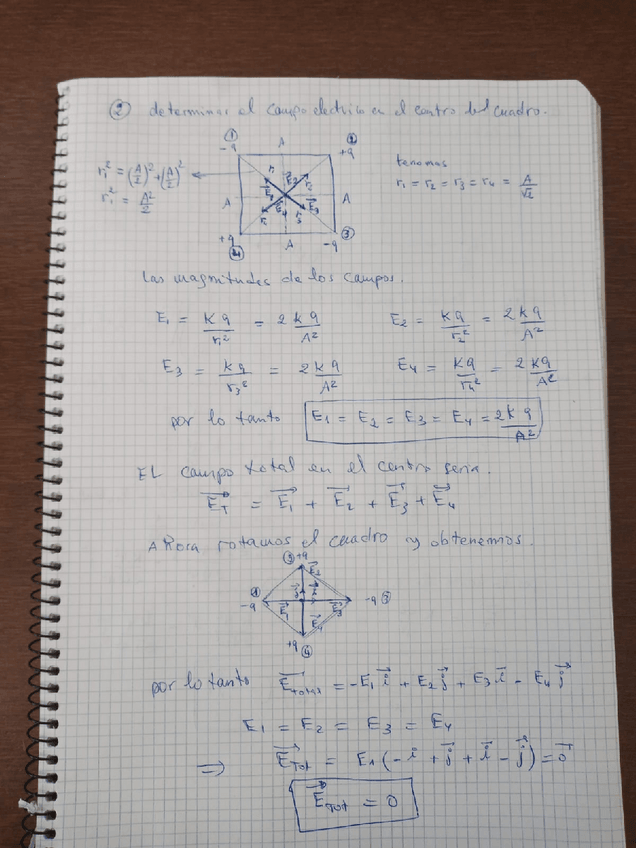 ② determinar el campo electrico en el centro del cuadro.
① -q A ② +q
r₁² = (A/2)² + (A/2)²
r₁² = A²/2
A r₁ E₁ E₂ r₂ A
r₄ E₄ r₃ E₃
+q ④ A -q ③
tenemos
r₁ = r₂ = r₃ = r₄ = A/√2
Las magnitudes de los campos.
E₁ = Kq/r₁² = 2kq/A² E₂ = Kq/r₂² = 2kq/A²
E₃ = kq/r₃² = 2kq/A² E₄ = Kq/r₄² = 2kq/A²
por lo tanto E₁ = E₂ = E₃ = E₄ = 2kq/A²
EL campo total en el centro seria.
E⃗T = E⃗₁ + E⃗₂ + E⃗₃ + E⃗₄
AHora rotamos el cuadro y obtenemos.
② +q
E⃗₂
① -q E⃗₁ j⃗ i⃗ E⃗₃ -q ③
E⃗₄
+q ④
por lo tanto E⃗total = -E₁ i⃗ + E₂ j⃗ + E₃ i⃗ - E₄ j⃗
E₁ = E₂ = E₃ = E₄
⇒ E⃗Tot = E₁(-i⃗ + j⃗ + i⃗ - j⃗) = 0⃗
E⃗Tot = 0